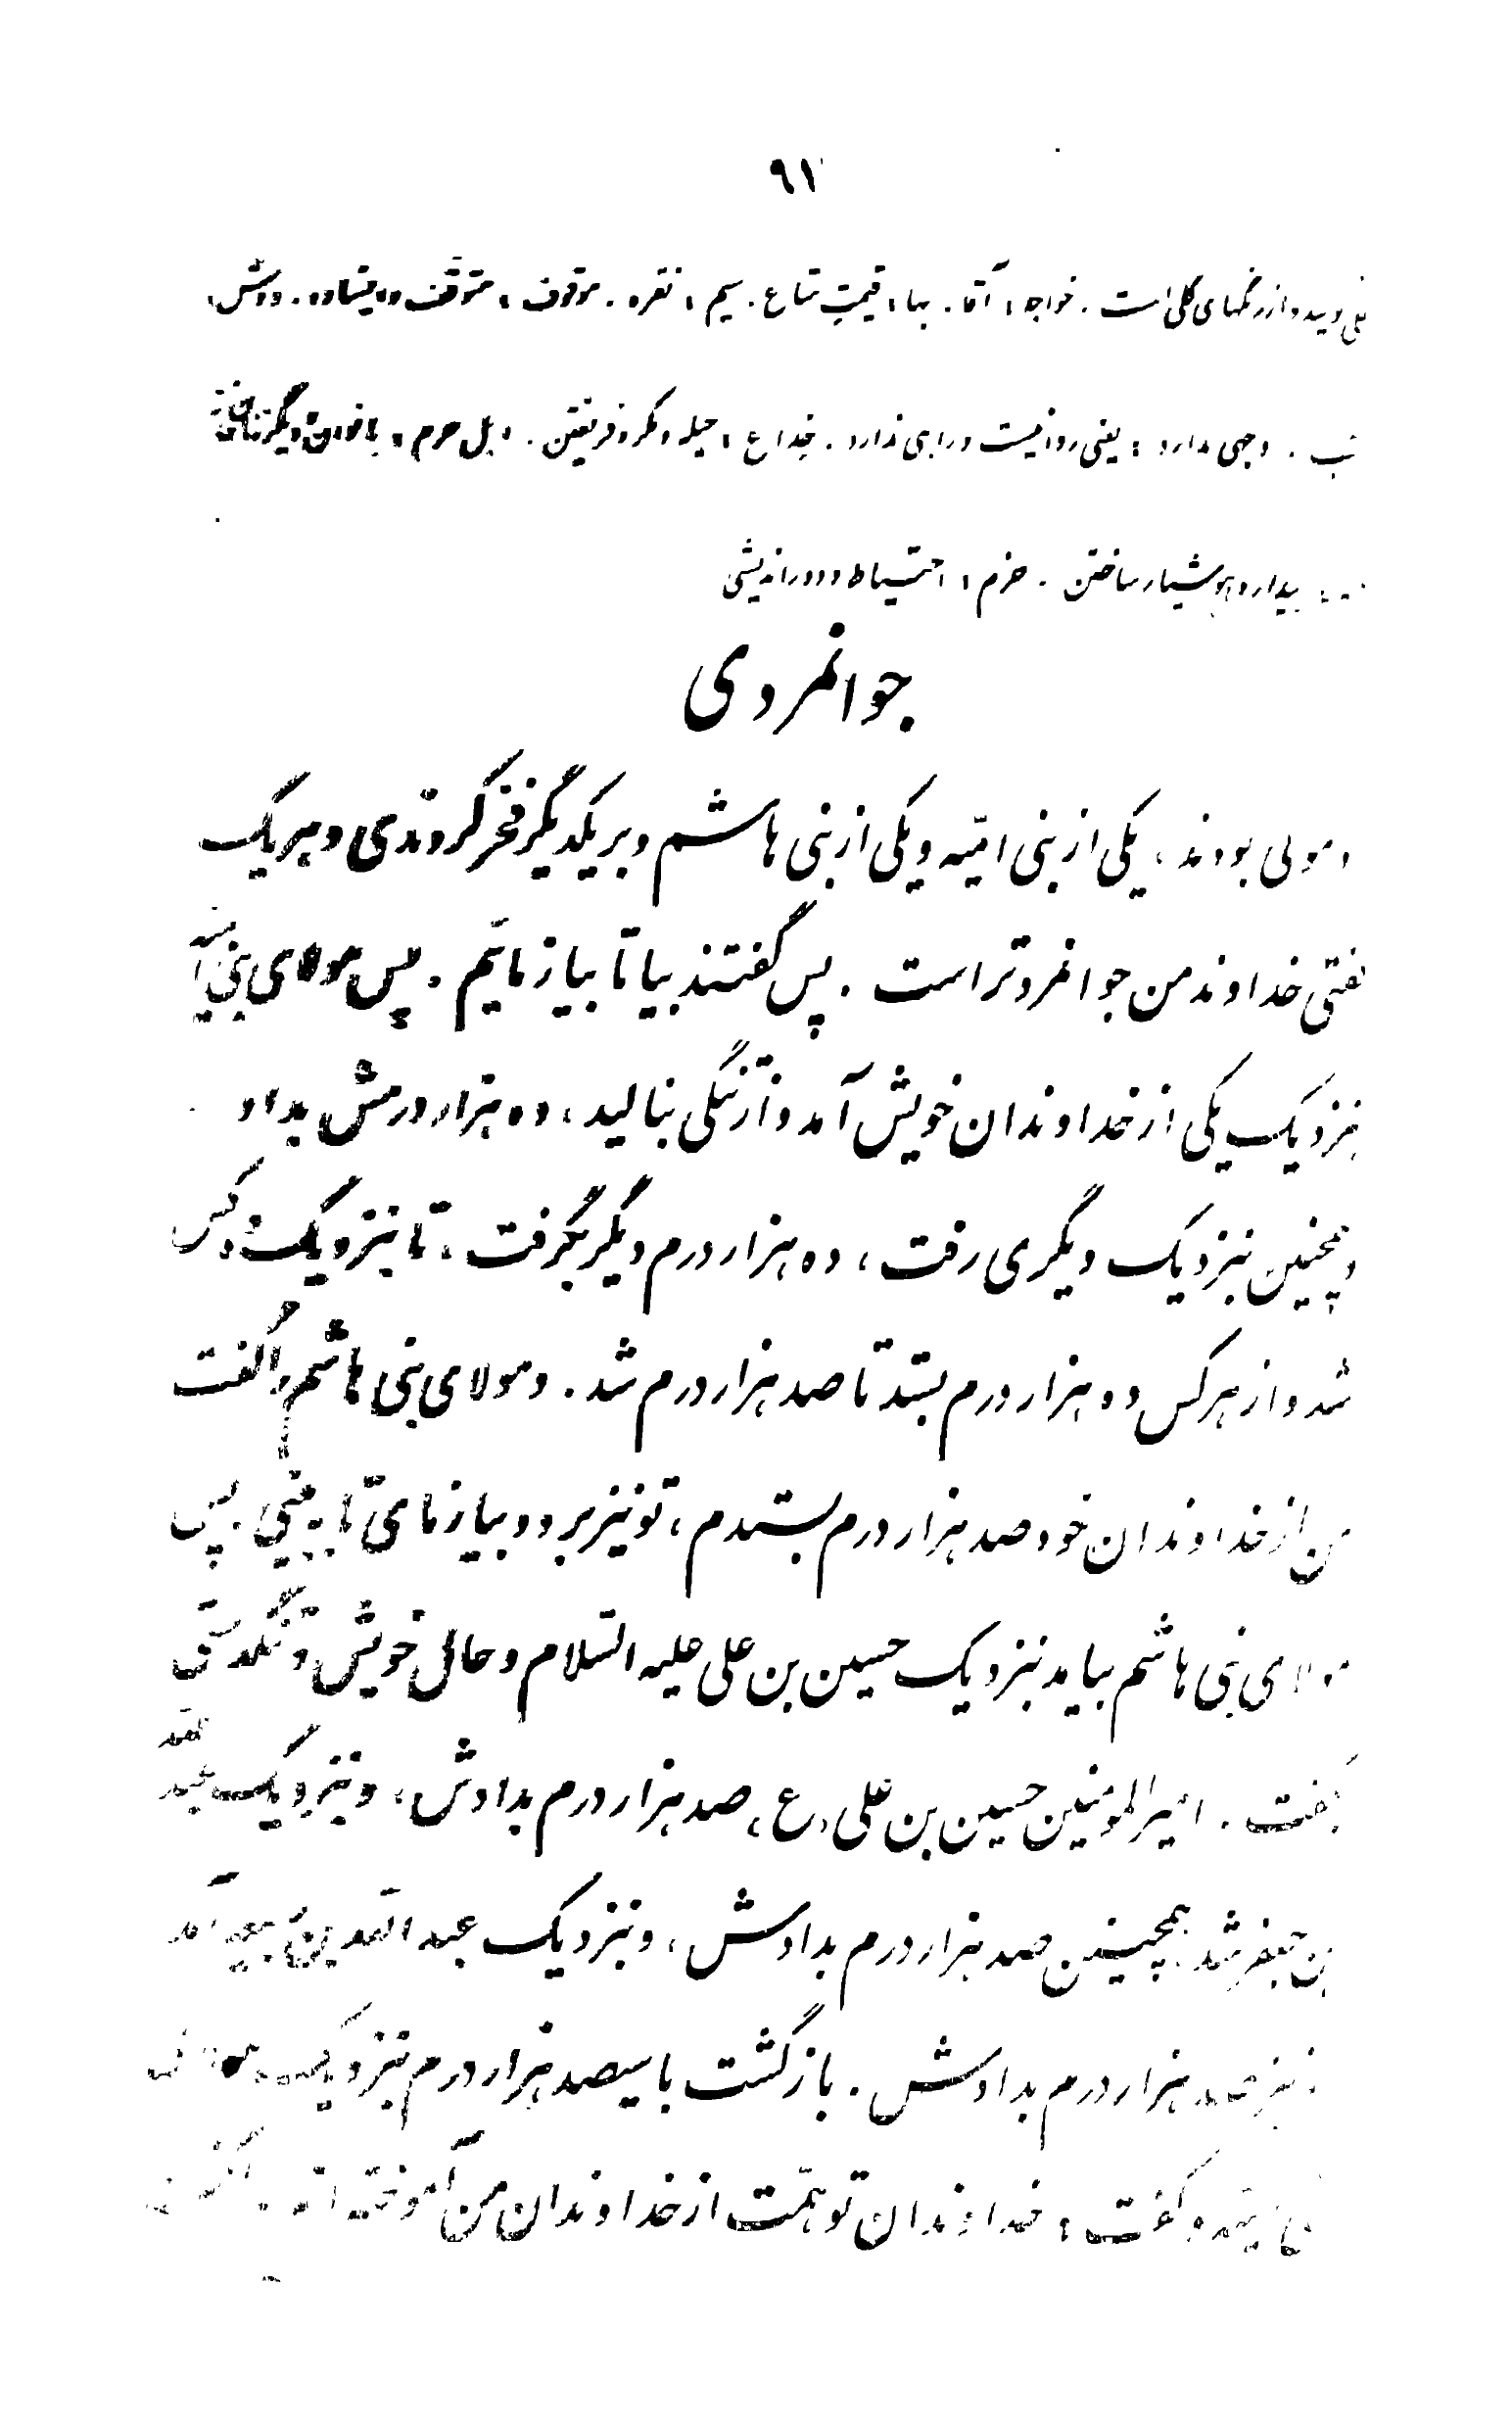 ۹۱
گلی است . خواجه ، آقا . بها ، قیمت متاع . سیم ، نقره . موقوف ، متوقف وایستاده . دوش ،
شب . وجهی ندارد ، یعنی روا نیست و راهی ندارد . خداع ، حیله و مکر و فریفتن .
بیدار و هوشیار ساختن . حزم ، احتیاط و دوراندیشی
جوانمردی
دو مولی بودند ، یکی از بنی امیّه و یکی از بنی هاشم و بر یکدیگر فخر کردندی و هریک
گفتی خداوند من جوانمردتر است . پس گفتند بیا تا بیازمائیم . پس مولای بنی امیّه
بنزدیک یکی از خداوندان خویش آمد و از تنگی بنالید ، ده هزار درمش بداد
و همچنین بنزدیک دیگری رفت ، ده هزار درم دیگر بگرفت ، تا بنزدیک ده کس
شد و از هر کس ده هزار درم بستد تا صد هزار درم شد . و مولای بنی هاشم را گفت
من از خداوندان خود صد هزار درم بستدم ، تو نیز برو و بیازمای تا چه بینی . پس
مولای بنی هاشم بیامد بنزدیک حسین بن علی علیه السّلام و حال خویش و تنگدستی
بگفت . امیرالمومنین حسین بن علی ، ع ، صد هزار درم بدادش ، و بنزدیک عبد الله
بن جعفر شد همچنین صد هزار درم بدادش ، و بنزدیک عبد الله بن آمد
نیز صد هزار درم بدادش . بازگشت با سیصد هزار درم بنزدیک مولای
امیّه و گفت ، خداوندان تو همّت از خداوندان من آموخته اند